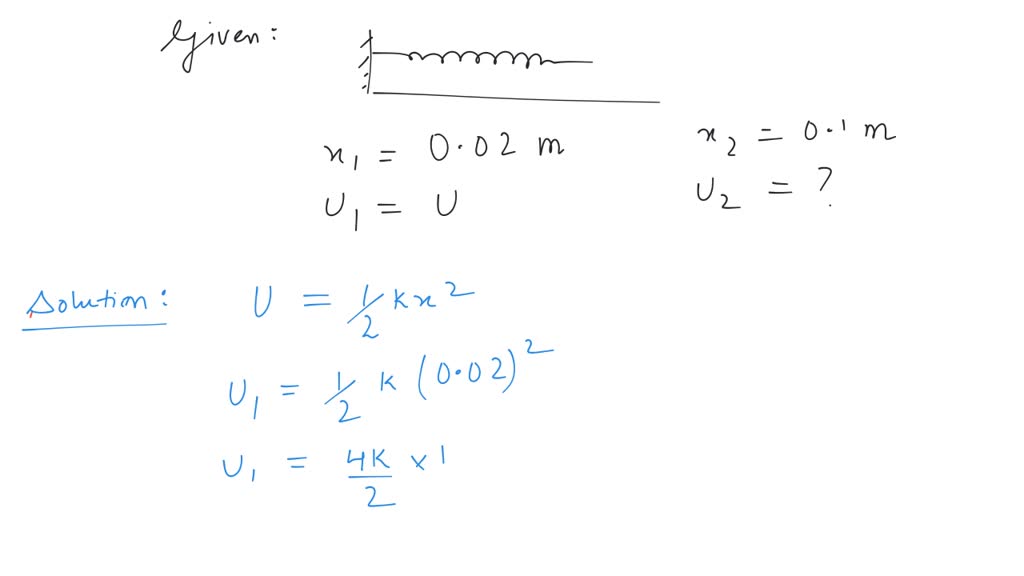 Given:
x₁ = 0.02 m
x₂ = 0.1 m
U₁ = U
U₂ = ?
Solution: U = 1/2 kx²
U₁ = 1/2 k (0.02)²
U₁ = 4k/2 × 1